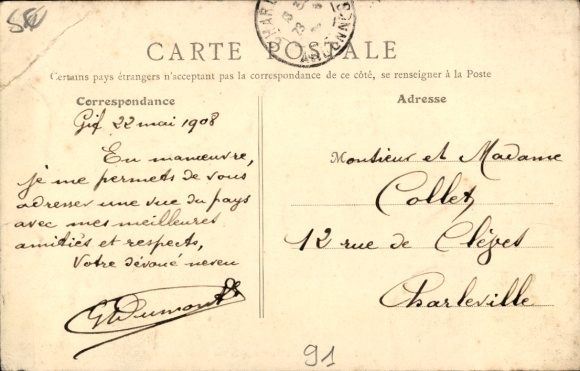 CARTE POSTALE
Certains pays étrangers n'acceptant pas la correspondance de ce côté, se renseigner à la Poste
Correspondance
Gif 22 mai 1908
En manœuvre,
je me permets de vous
adresser une vue du pays
avec mes meilleures
amitiés et respects,
Votre dévoué neveu
Dumont
Adresse
Monsieur et Madame
Collet
12 rue de Clèves
Charleville
91